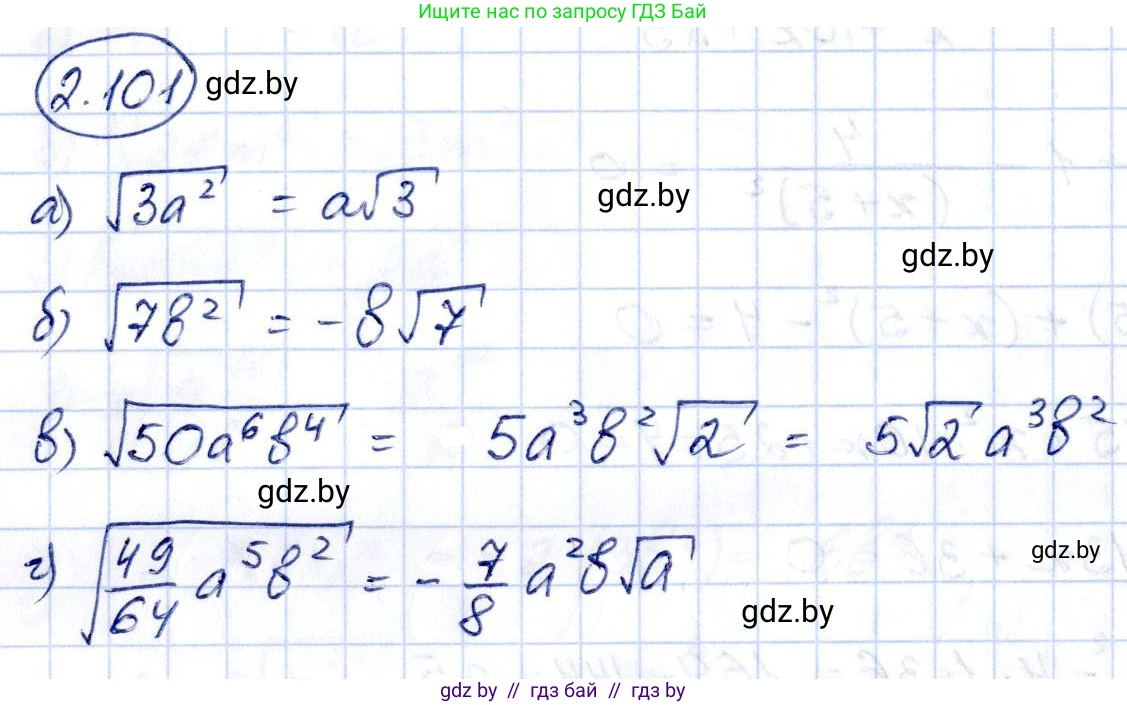 Ищите нас по запросу ГДЗ Бай
2.101 gdz.by
а) √3a² = a√3 gdz.by
gdz.by
б) √7b² = -b√7
в) √50a⁶b⁴ = 5a³b²√2 = 5√2 a³b²
gdz.by
г) √49/64 a⁵b² = - 7/8 a²b√a
gdz.by
gdz.by
gdz by // гдз бай // гdз by